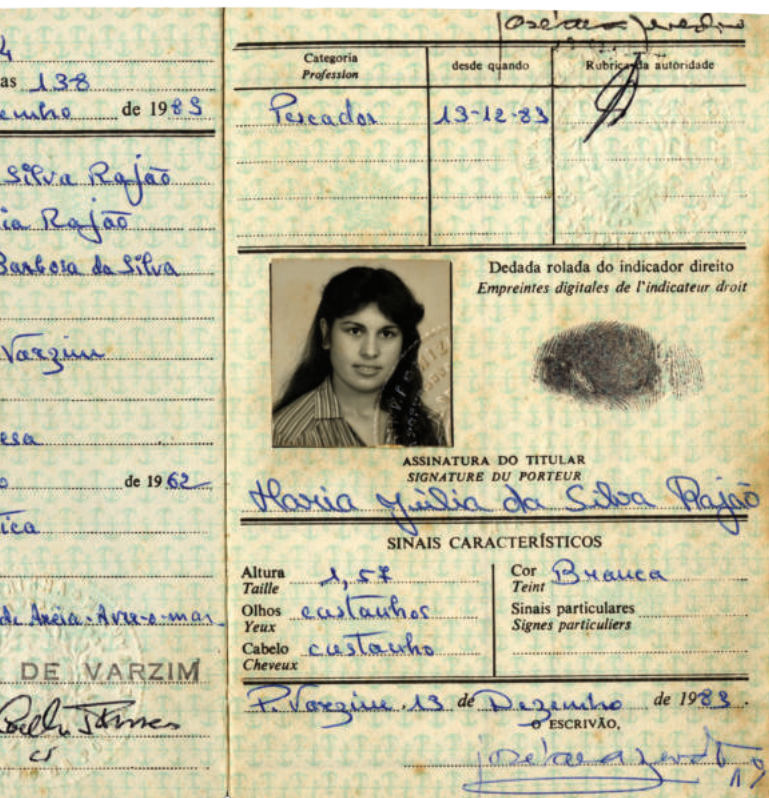 4
as 138
embro de 1983
Silva Rajão
ia Rajão
Barbosa da Silva
Varzim
esa
o de 1962
ica
de Aguçadoura
DE VARZIM
Categoria
Profession
desde quando
Rubrica da autoridade
Pescador 13-12-83
Dedada rolada do indicador direito
Empreintes digitales de l'indicateur droit
ASSINATURA DO TITULAR
SIGNATURE DU PORTEUR
Maria Júlia da Silva Rajão
SINAIS CARACTERÍSTICOS
Altura 1,57
Taille
Olhos castanhos
Yeux
Cabelo castanho
Cheveux
Cor Branca
Teint
Sinais particulares
Signes particuliers
P. Varzim, 13 de Dezembro de 1983.
O ESCRIVÃO,